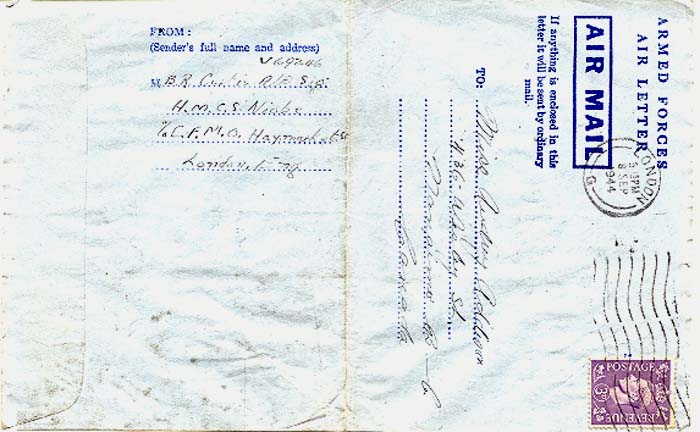 FROM:
(Sender's full name and address)
V69246
M B.R. Curtis A/B. Sig.
H.M.C.S. Niobe
℅ C.F.M.O. Haymarket
London, Eng
ARMED FORCES
AIR LETTER
AIR MAIL
If anything is enclosed in this
letter it will be sent by ordinary
mail.
TO:
Miss Audrey
436 St
Nanaimo B.C.
Canada
LONDON
PM
8 SEP
1944
POSTAGE
3D
REVENUE